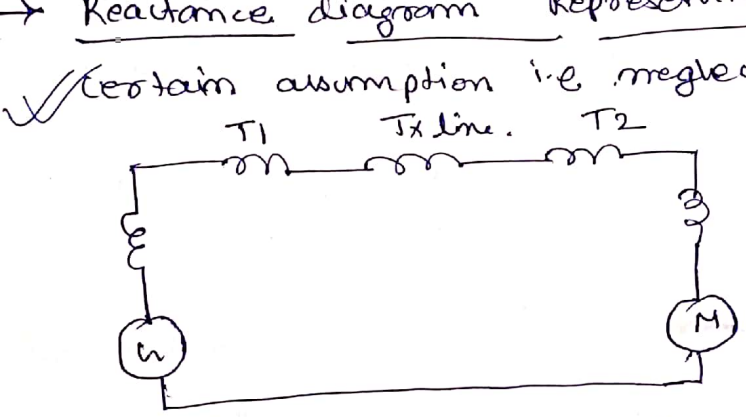 → Reactance diagram
✓ certain assumption i.e
T1 Tx line. T2
G M